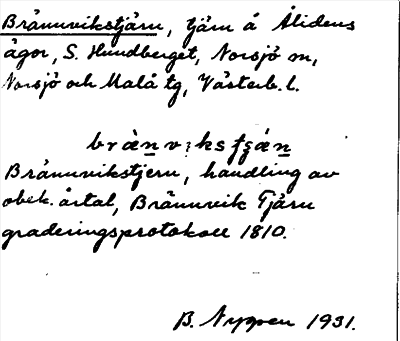 Brännvikstjärn, tjärn å Ålidens
ägor, S. Hundberget, Norsjö sn,
Norsjö och Malå tg, Västerb. l.
Brännvikstjern, handling av
obek. årtal, Brännvik Tjärn
graderingsprotokoll 1810.
B. Nygren 1931.